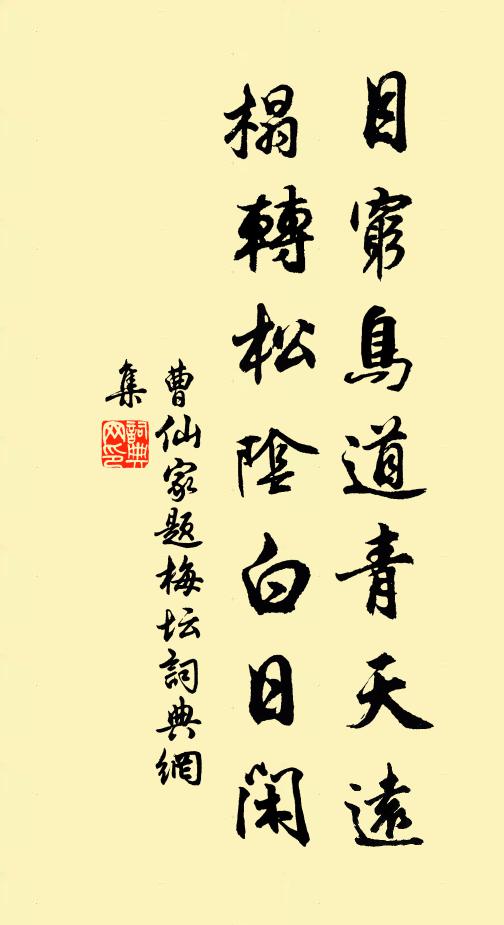 目窮鳥道青天遠
榻轉松陰白日閑
曹仙家题梅坛詞典網
集
詞典网印